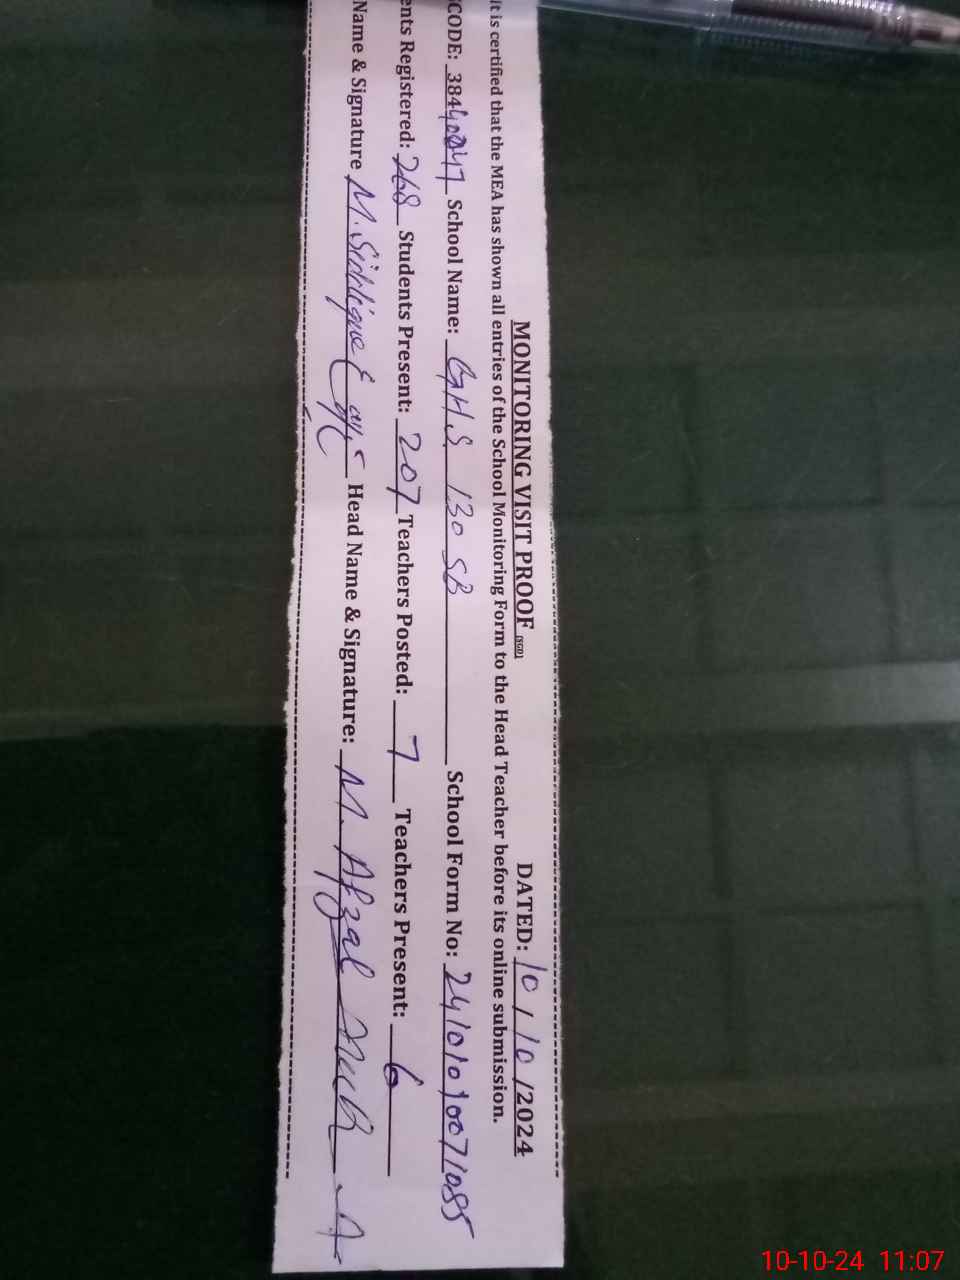 MONITORING VISIT PROOF (SGD) DATED: 10 / 10 /2024
It is certified that the MEA has shown all entries of the School Monitoring Form to the Head Teacher before its online submission.
CODE: 38440047 School Name: GHS 130 SB School Form No:
ents Registered: 268 Students Present: 207 Teachers Posted: 7 Teachers Present: 6
Name & Signature M. Siddique Head Name & Signature: M. Afzal
10-10-24 11:07